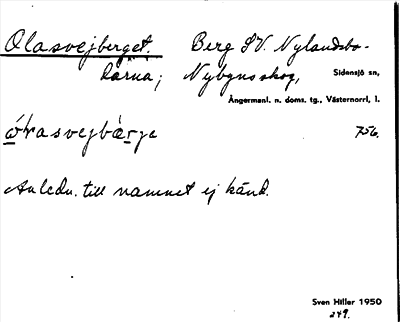 Olasvejberget. Berg SV. Nylandsbo-
darna; Nybynsskog, Sidensjö sn,
Ångermanl. n. doms. tg., Västernorrl. l.
756.
Anledn. till namnet ej känd.
Sven Hiller 1950
249.